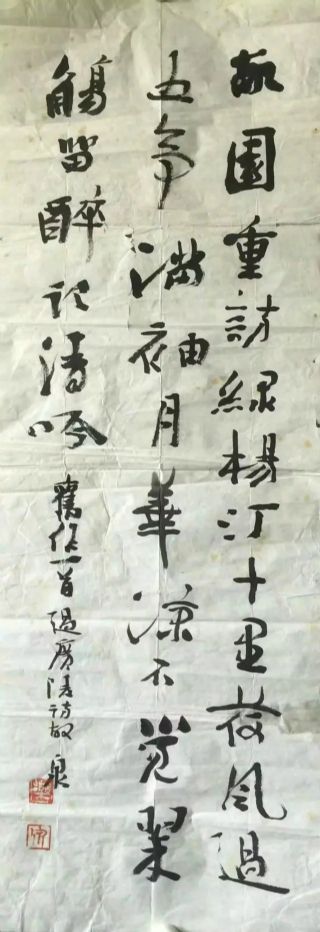 故園重訪綠楊汀十里荷風過
五亭滿袖月華涼不覺翠
觴留醉記清吟
舊作一首過廣陵訪故